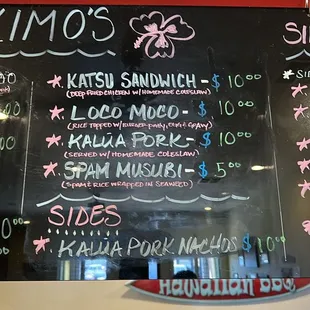 KIMO'S
KATSU SANDWICH - $10.00
(DEEP FRIED CHICKEN W/ HOMEMADE COLESLAW)
LOCO MOCO - $10.00
(RICE TOPPED W/ BURGER PATTY, EGG & GRAVY)
KALUA PORK - $10.00
(SERVED W/ HOMEMADE COLESLAW)
SPAM MUSUBI - $5.00
(SPAM & RICE WRAPPED IN SEAWEED)
SIDES
KALUA PORK NACHOS $10.00
Hawaiian BBQ